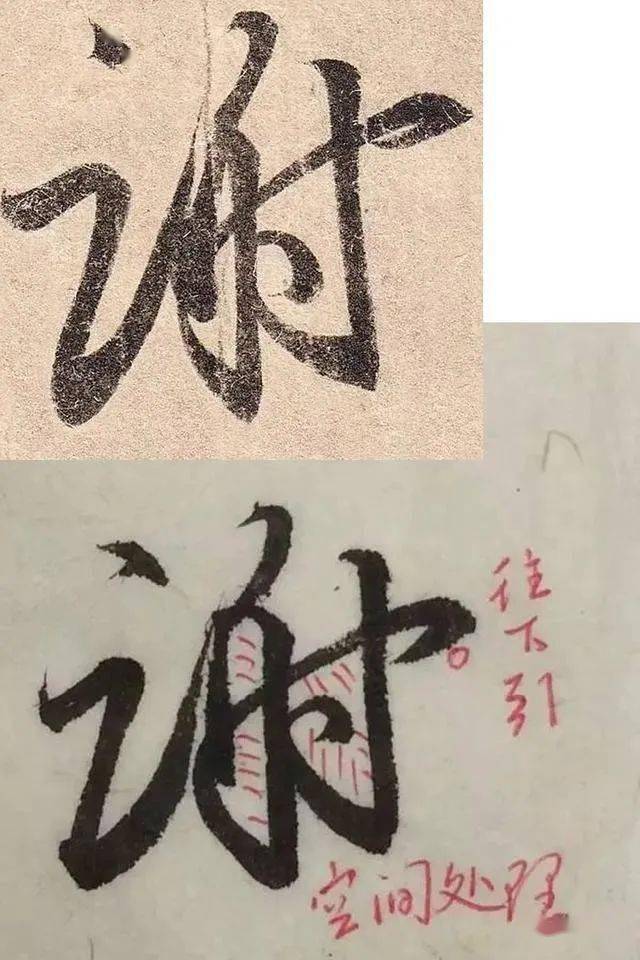 谢
谢
往下引
空间处理